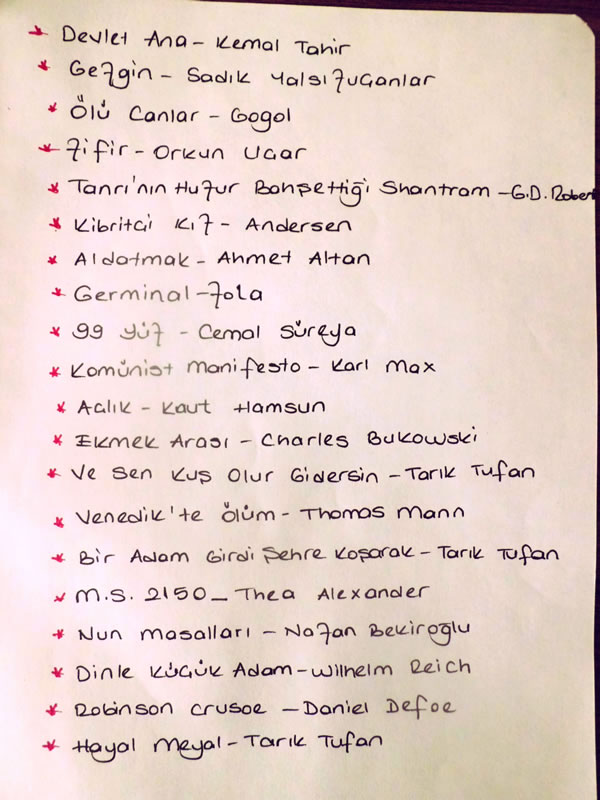 * Devlet Ana - Kemal Tahir
* Gezgin - Sadık Yalsızuçanlar
* Ölü Canlar - Gogol
* Zifir - Orkun Ucar
* Tanrı'nın Huzur Bahşettiği Shantram - G.D. Robert
* Kibritci Kız - Andersen
* Aldatmak - Ahmet Altan
* Germinal - Zola
* 99 Yüz - Cemal Süreya
* Komünist Manifesto - Karl Max
* Aclık - Kaut Hamsun
* Ekmek Arası - Charles Bukowski
* Ve Sen Kuş Olur Gidersin - Tarık Tufan
* Venedik'te Ölüm - Thomas Mann
* Bir Adam Girdi Şehre Koşarak - Tarık Tufan
* M.S. 2150 _ Thea Alexander
* Nun Masalları - Nazan Bekiroğlu
* Dinle Küçük Adam - Wilhelm Reich
* Robinson Crusoe - Daniel Defoe
* Hayal Meyal - Tarık Tufan